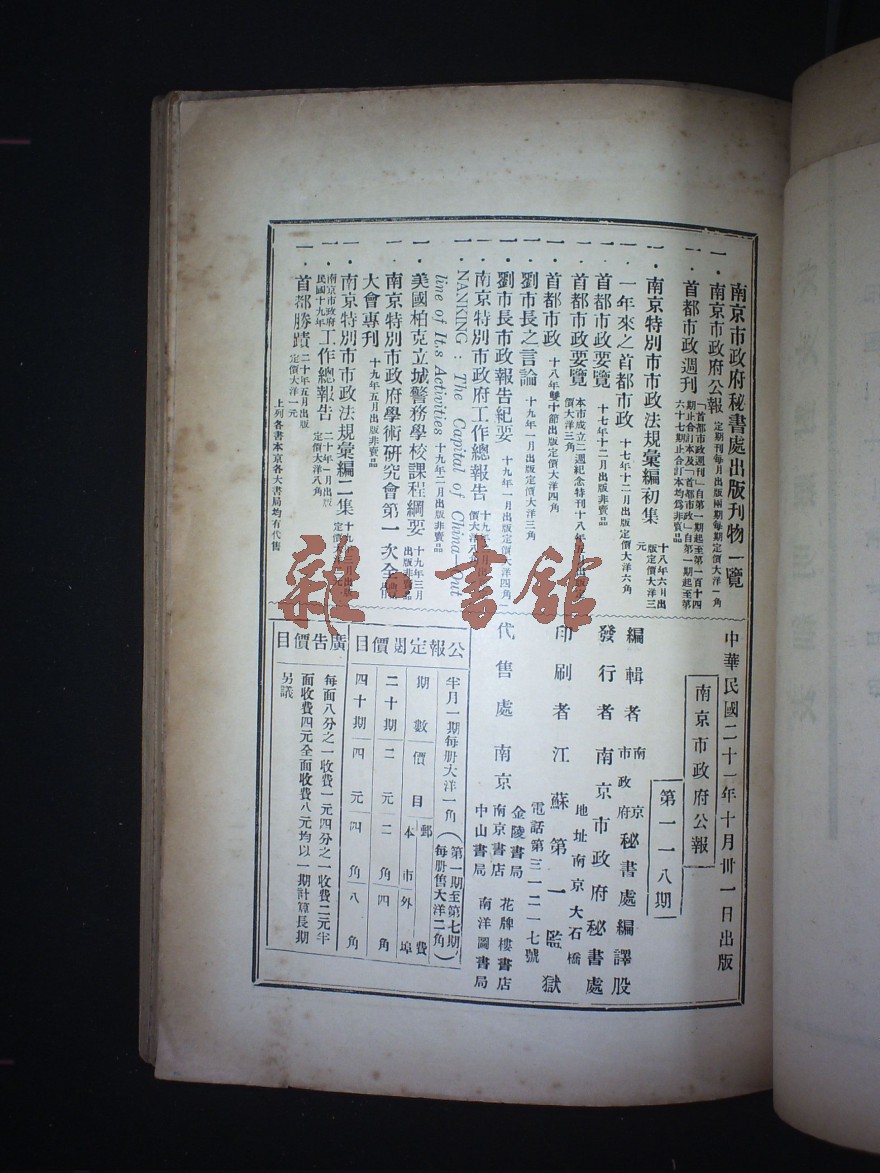 南京市政府秘書處出版刊物一覽
一．南京市政府公報 定期刊每月出版兩期每期定價大洋一角
一．首都市政週刊 「首都市政週刊」自第一期起至第一百十四
期止合訂本及「首都市政」自第一期起至第
六十七期止合訂本均為非賣品
一．南京特別市市政法規彙編初集 十八年六月出
版定價大洋三
元
一．一年來之首都市政 十七年十二月出版定價大洋六角
一．首都市政要覽 十七年十二月出版非賣品
一．首都市政要覽 本市成立二週紀念特刊十八年
價大洋三角
一．首都市政 十八年雙十節出版定價大洋四角
一．劉市長之言論 十九年一月出版定價大洋三角
一．劉市長市政報告紀要 十九年一月出版定價大洋四角
一．南京特別市政府工作總報告 十九年
價大洋八角
一．NANKING : The Capital of China—Out
line of It.s Activities 十九年二月出版非賣品
一．美國柏克立城警務學校課程綱要 十九年三月
出版非賣品
一．南京特別市政府學術研究會第一次全
大會專刊 十九年五月出版非賣品
一．南京特別市市政法規彙編二集 十九年
定價大洋
一．南京市政府
民國十九年 工作總報告 二十年一月出版
定價大洋八角
一．首都勝蹟 二十年五月出版
定價大洋一元
上列各書本京各大書局均有代售
中華民國二十一年十月卅一日出版
南京市政府公報
第一一八期
編輯者 南京
市政府 秘書處編譯股
發行者 南京市政府秘書處
地址南京大石橋
印刷者 江蘇第一監獄
電話第三一二一七號
代售處 南京
金陵書局 花牌樓書店
南京書店
中山書局 南洋圖書局
公報定閱價目
半月一期每册大洋一角（第一期至第七期
每册售大洋二角）
期數 價目 郵費
本市 外埠
二十期 二元 二角 四角
四十期 四元 四角 八角
廣告價目
每面八分之一收費一元四分之一收費二元半
面收費四元全面收費八元均以一期計算長期
另議
雜·書館